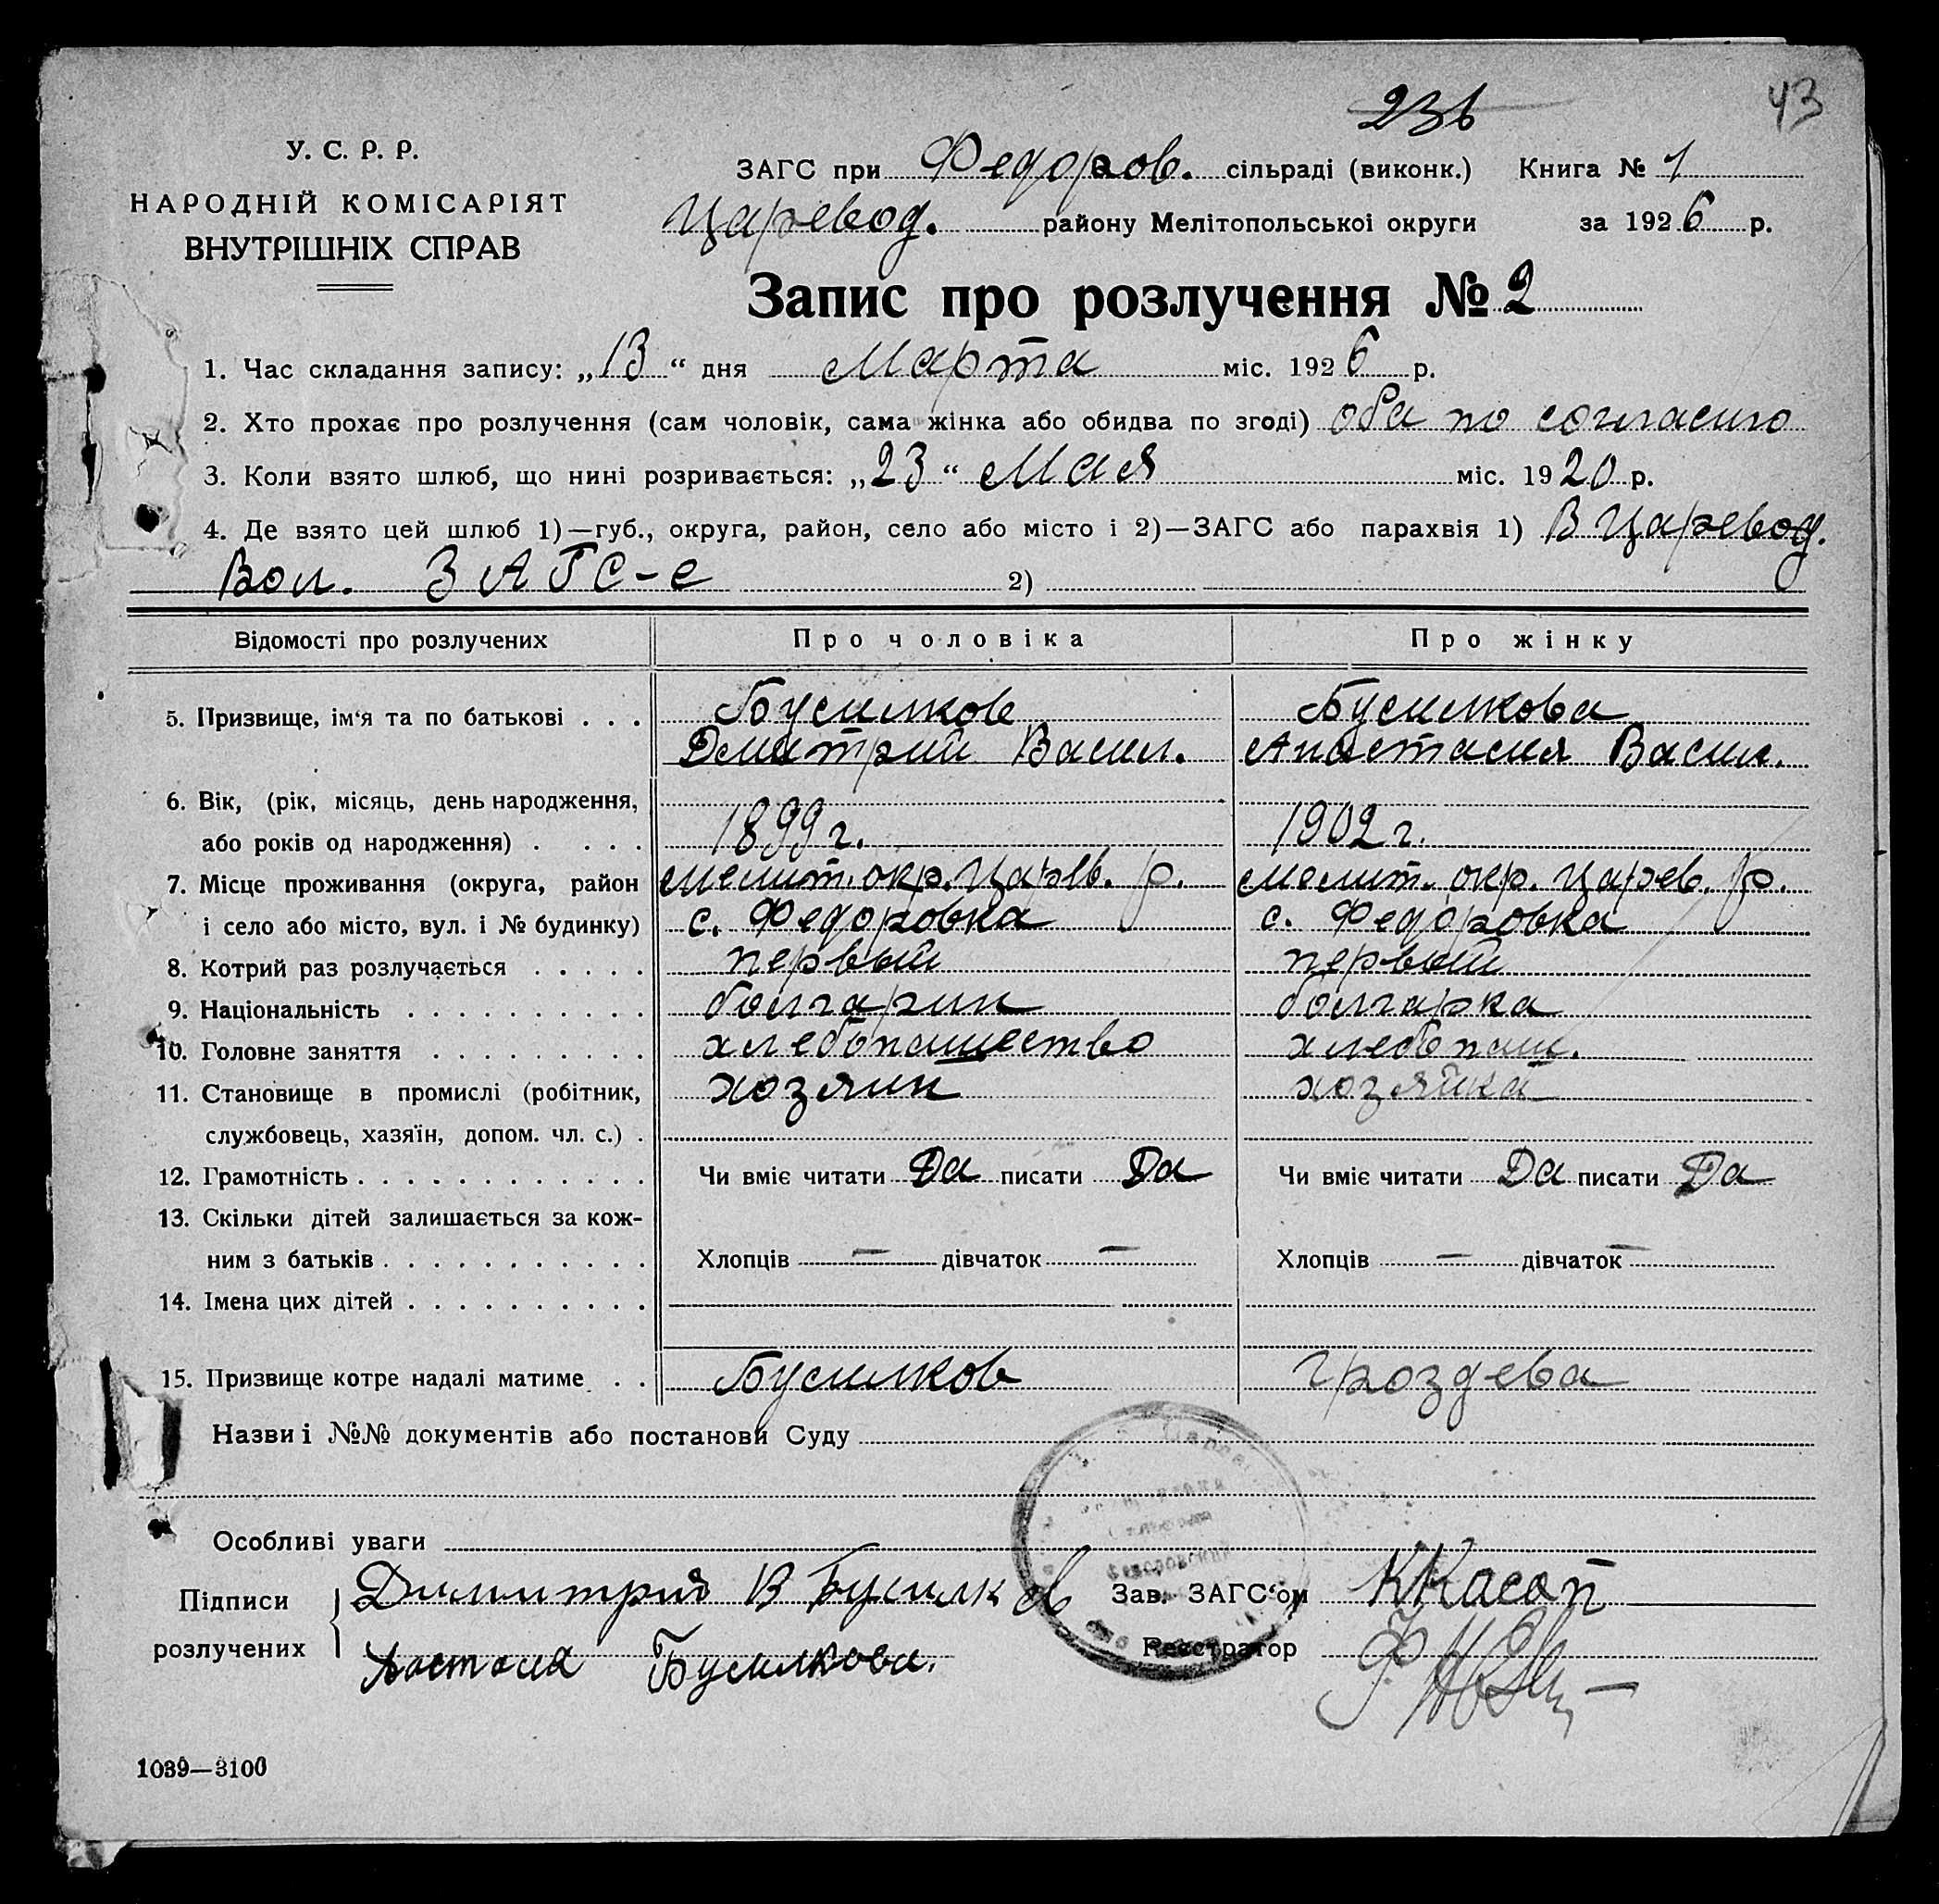 236
43
У. С. Р. Р.
НАРОДНІЙ КОМІСАРІЯТ
ВНУТРІШНІХ СПРАВ
ЗАГС при Федоров. сільраді (виконк.) Книга № 1
Царевод. району Мелітопольської округи за 1926 р.
Запис про розлучення № 2
1. Час складання запису: „13“ дня Марта міс. 1926 р.
2. Хто прохає про розлучення (сам чоловік, сама жінка або обидва по згоді) оба по согласию
3. Коли взято шлюб, що нині розривається: „23“ Мая міс. 1920 р.
4. Де взято цей шлюб 1)—губ., округа, район, село або місто і 2)—ЗАГС або парахвія 1) В Царевод.
Вол. ЗАГС-е 2)
Відомості про розлучених Про чоловіка Про жінку
5. Призвище, ім'я та по батькові . . . Бусилков Бусилкова
Дмитрий Васил. Анастасия Васил.
6. Вік, (рік, місяць, день народження,
або років од народження) . . . . . 1899 г. 1902 г.
7. Місце проживання (округа, район Мелит. окр. Царев. р. Мелит. окр. Царев. р.
і село або місто, вул. і № будинку) с. Федоровка с. Федоровка
8. Котрий раз розлучається . . . . . первый первый
9. Національність . . . . . . . . . . болгарин болгарка
10. Головне заняття . . . . . . . . . хлебопашество хлебопаш.
11. Становище в промислі (робітник, хозяин хозяйка
службовець, хазяїн, допом. чл. с.) .
12. Грамотність . . . . . . . . . . . . Чи вміє читати Да писати Да Чи вміє читати Да писати Да
13. Скільки дітей залишається за кож-
ним з батьків . . . . . . . . . . . Хлопців — дівчаток — Хлопців — дівчаток —
14. Імена цих дітей . . . . . . . . . .
15. Призвище котре надалі матиме . . Бусилков Гроздева
Назви і №№ документів або постанови Суду
Особливі уваги
Підписи розлучених
Димитрий В Бусилков
Зав. ЗАГС'ом
Бусилкова.
Реєстратор
1039—3100